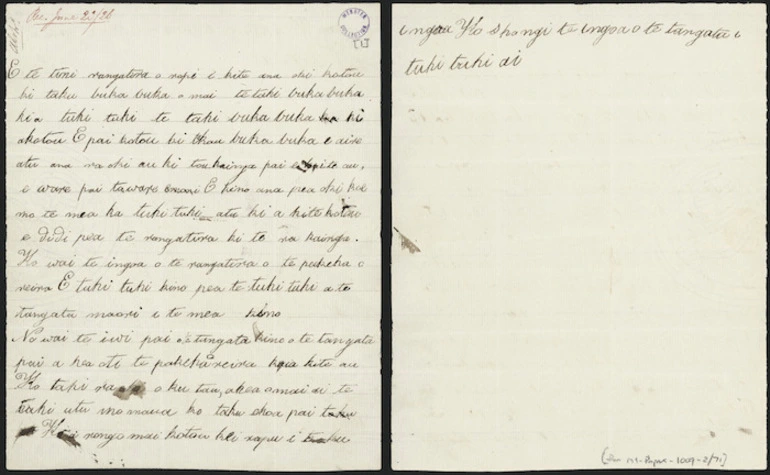 Rec. June 22/26
WEBSTER COLLECTION
E te tini rangatira o ropi i kite ana oki kotou
ki taku buka buka o mai te tuki buka buka
kia tuki tuki te taki buka buka ki
akotou E pai kotou ki okau buka buka e aire
atu ana ra oki au ki toukainga pai e kite au,
e ware pai taware E kino ana pea oki koe
mo te mea ka tuki tuki atu ki a kite kotou
e didi pea te rangatira ki to ra kainga.
Ko wai te ingoa o te rangatira o te pakeha o
reira E tuki tuki kino pea te tuki tuki a te
tangata maori i te mea kino
No wai te iwi pai tangata kino o te tangata
pai a kea oti te pakeha reira kite au
Ko taki o ku tau, akea omai ai te
taki utu mo maua ko taku ekoa pai
Kia rongo mai kotou kei rapu i
ingoa Ko Shongi te ingoa o te tangata i
tuki tuki ai
(See MS-Papers-1009-2/71)